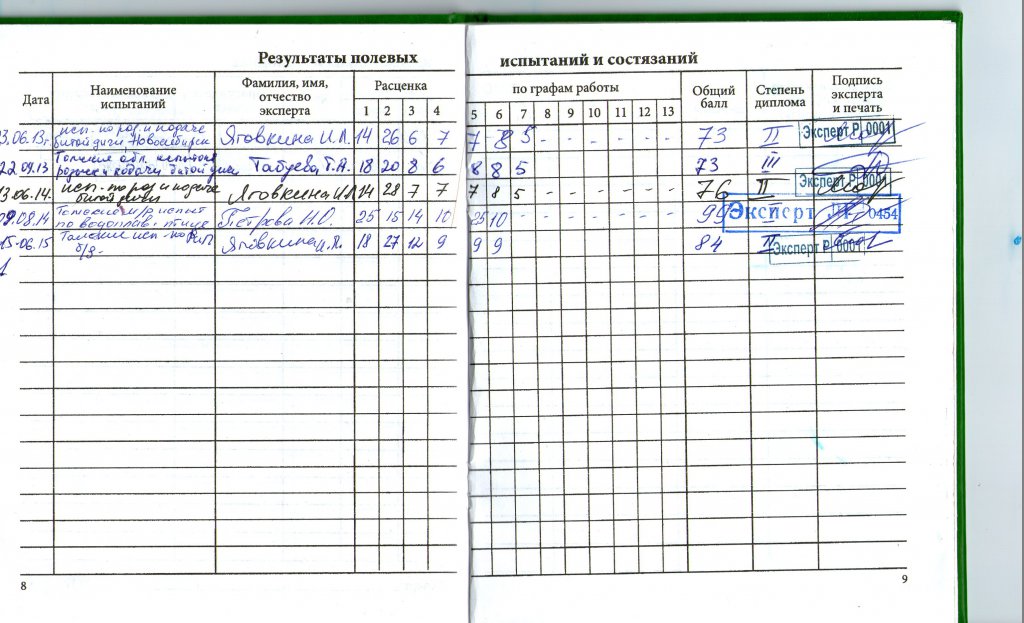 Результаты полевых испытаний и состязаний
Дата Наименование испытаний Фамилия, имя, отчество эксперта Расценка по графам работы Общий балл Степень диплома Подпись эксперта и печать
1 2 3 4 5 6 7 8 9 10 11 12 13
3.06.13г. исп. по роз. и подаче битой дичи, Новосибирск Яговкина И.А. 14 26 6 7 7 8 5 - - - - - - 73 II Эксперт Р 0001
22.09.13 Томские обл. родосеи подачи битой дичи Табуева Т.А. 18 20 8 6 8 8 5 73 III
13.06.14. исп. по роз. и подаче битой дичи Яговкина И.А. 14 28 7 7 7 8 5 76 II Эксперт Р 0001
09.08.14 Томские м/р испыт по водоплав. птице Петрова Н.О. 25 15 14 10 25 10 99 I Эксперт 0454
15.06.15 Томские исп. б/д. Яговкина И.А. 18 27 12 9 9 9 84 II Эксперт Р 0001
8
9